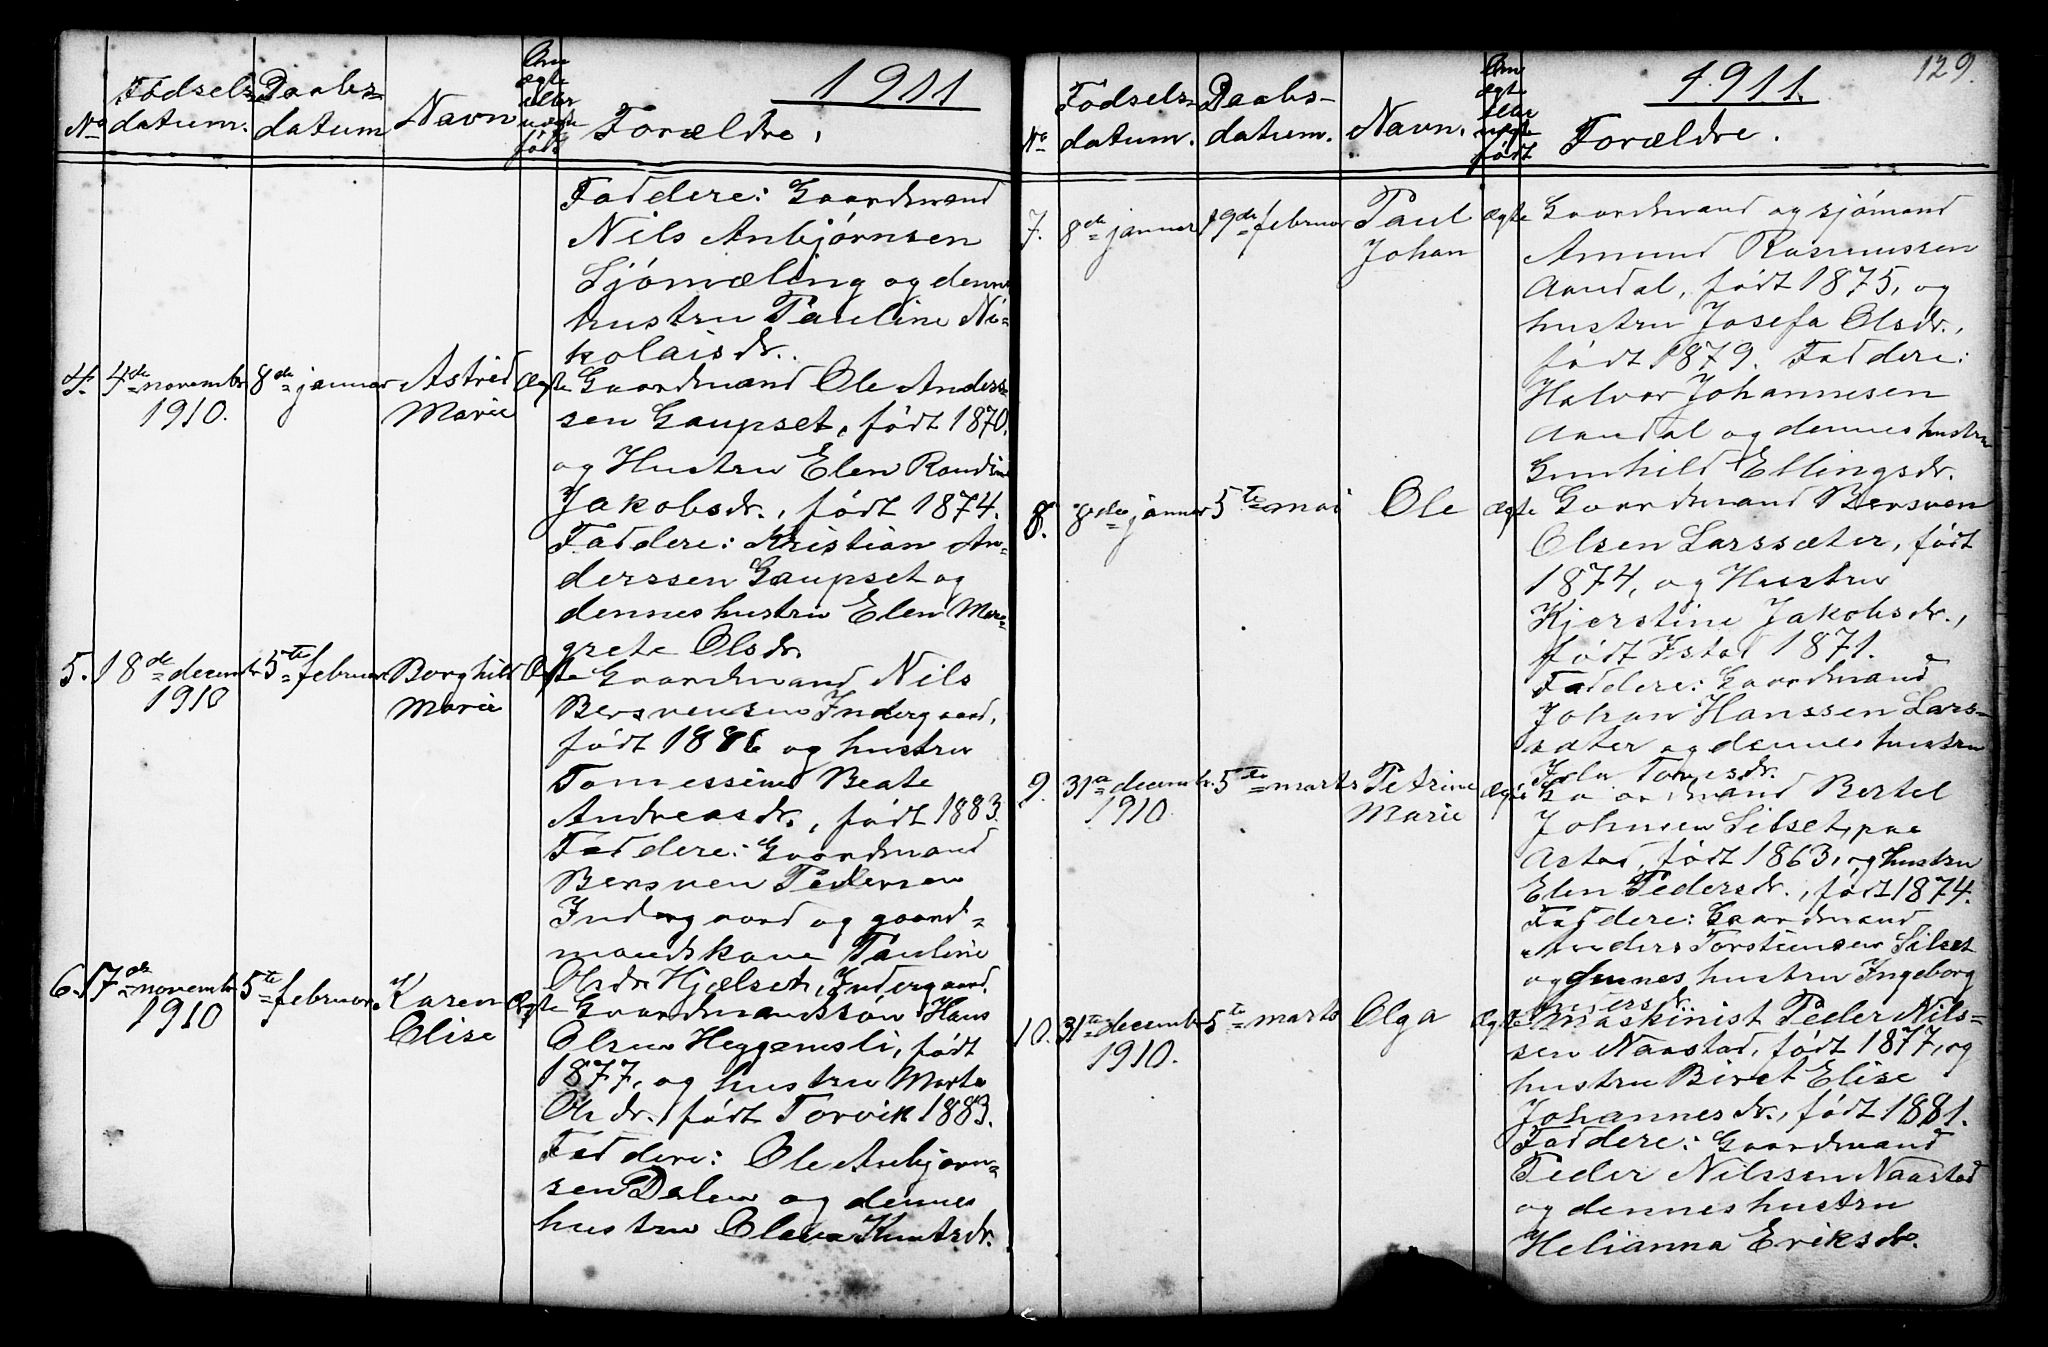 1911
No Fødsels-datum. Daabs-datum Navn Om ægte eller uægte født Forældre.
Faddere: Gaardmand
Nils Anbjørnsen
Sjømæling og dennes
hustru Pauline Ni-
kolaisdr.
4. 4de novembr 1910. 8de januar Astrid Marie Ægte Gaardmand Ole Anders-
sen Gaupset, født 1870.
og Hustru Elen Randine
Jakobsdr., født 1874.
Faddere: Kristian An-
derssen Gaupset og
dennes hustru Elen Mar-
grete Olsdr.
5. 18de decembr 1910 5te februar Borghild Marie Ægte Gaardmand Nils
Bersvensen Indergaard,
født 1886 og hustru
Tomessine Beate
Andreasdr., født 1883.
Faddere: Gaardmand
Bersven Pedersen
Indergaard og gaard-
mandskone Pauline
Olsdr Hjelset, Indergaard.
6. 17de novembr 1910 5te februar. Karen Elise Ægte Gaardmandssøn Hans
Olsen Heggemsli, født
1877, og hustru Marta
Olsdr. født Torvik 1883.
Faddere: Ole Anbjørn-
sen Dalen og dennes
hustru Olava Knutsdr.
129.
1911.
No Fødsels-datum. Daabs-datum. Navn. Om ægte eller uægte født Forældre.
7. 8de januar 19de februar Paul Johan Ægte Gaardmand og sjømand
Amund Rasmussen
Aandal, født 1875, og
hustru Josefa Olsdr.,
født 1879. Faddere:
Halvor Johannesen
Aandal og dennes hustru
Gunhild Ellingsdr.
8. 8de januar 5te mai Ole Ægte Gaardmand Bersven
Olsen Larssæter, født
1874, og Hustru
Kjerstine Jakobsdr.,
født Istad 1871.
Faddere: Gaardmand
Johan Hanssen Lars-
sæter og dennes hustru
9. 31te decembr. 1910 5te marts Petrine Marie Ægte Gaardmand Bertel
Johnsen Silset, paa
Astad, født 1863, og hustru
Elen Pedersdr., født 1874.
Faddere: Gaardmand
Anders Torsteinsen Silset
og dennes hustru Ingeborg
Andersdr.
10. 31te decembr 1910. 5te marts Olga Ægte Maskinist Peder Nils-
sen Naastad, født 1877, og
hustru Beret Elise
Johannesdr., født 1881.
Faddere: Gaardmand
Peder Nilssen Naastad
og dennes hustru
Helianna Eriksdr.